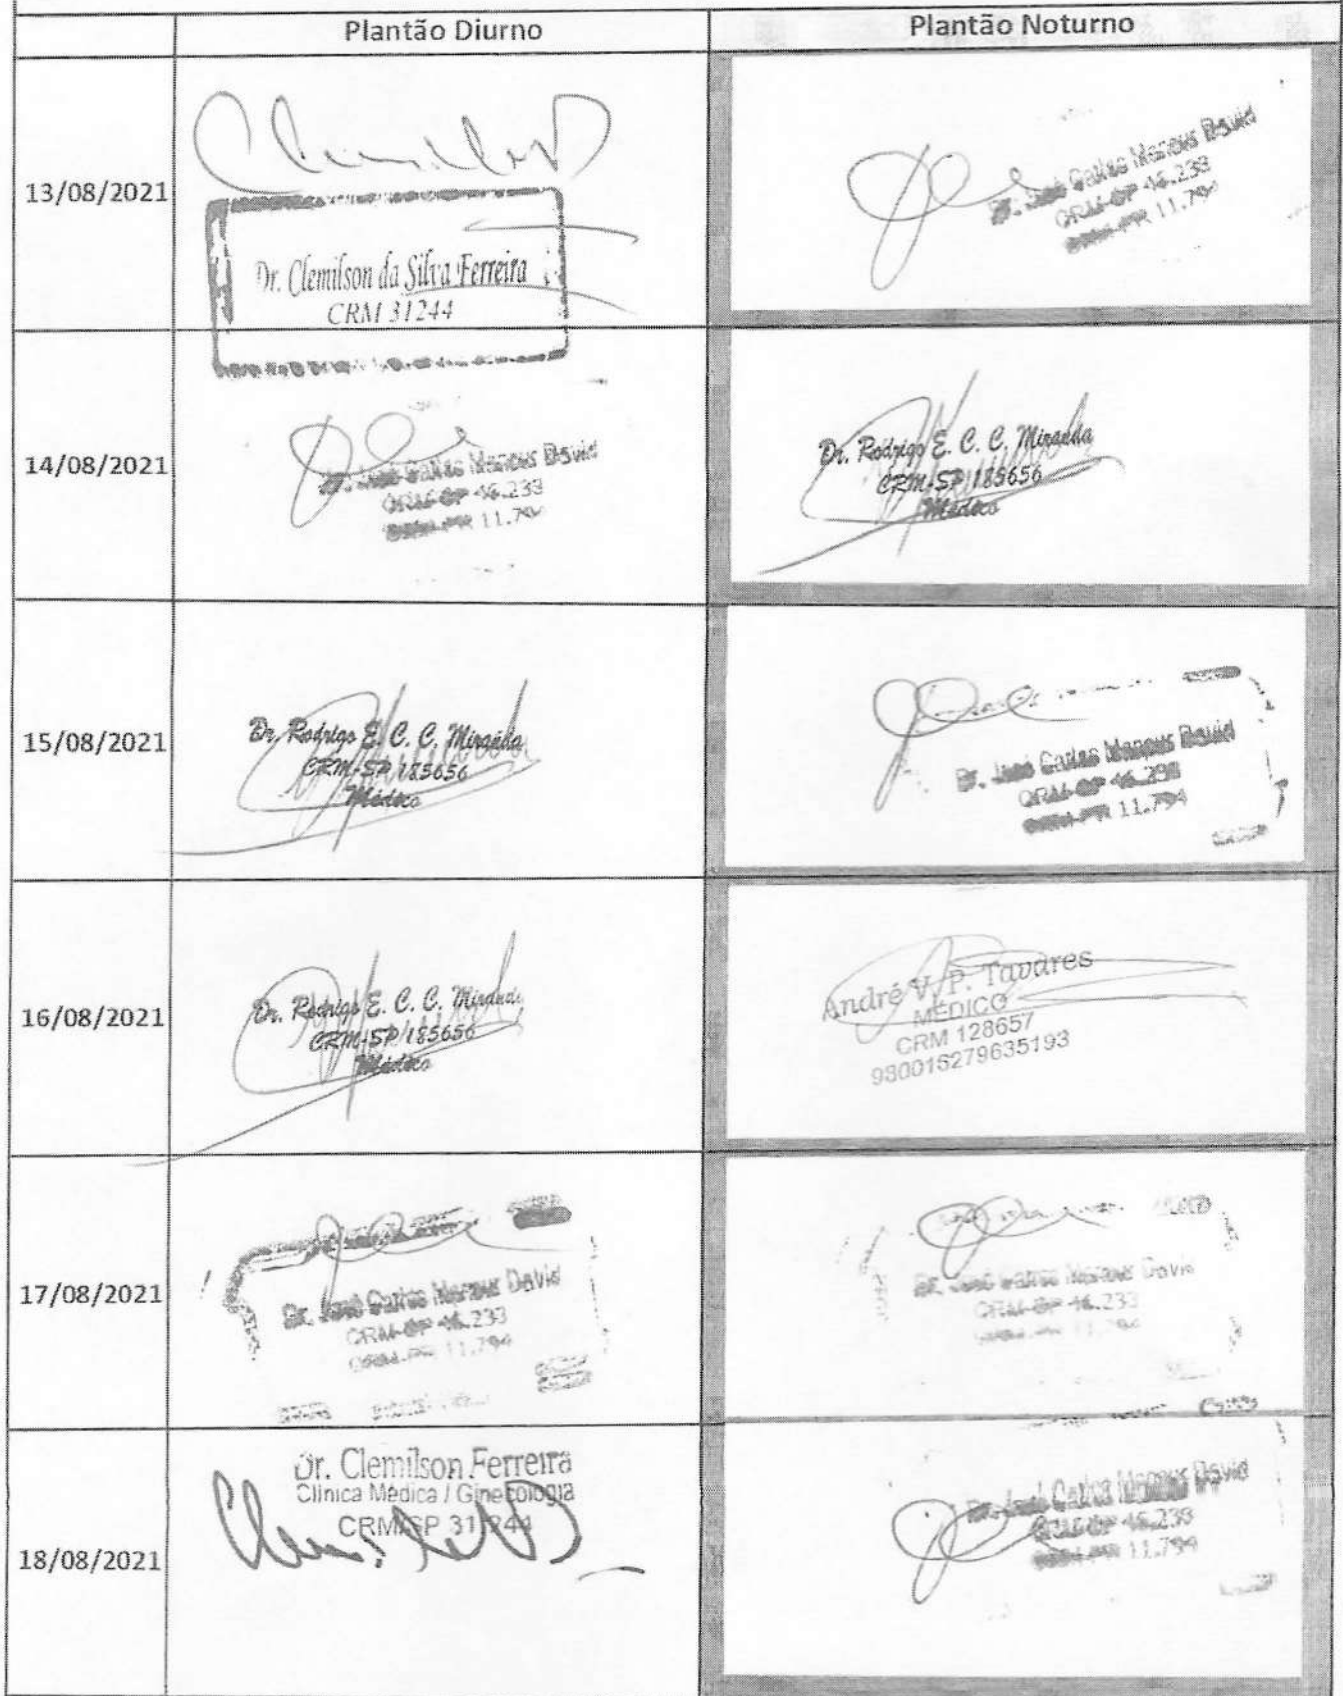 Plantão Diurno
Plantão Noturno
13/08/2021
Dr. Clemilson da Silva Ferreira
CRM 31244
Dr. José Carlos Marcus David
CRM-SP 46.233
CRM-PR 11.794
14/08/2021
Dr. José Carlos Marcus David
CRM-SP 46.233
CRM-PR 11.794
Dr. Rodrigo E. C. C. Miranda
CRM-SP 185656
Médico
15/08/2021
Dr. Rodrigo E. C. C. Miranda
CRM-SP 185656
Médico
Dr. José Carlos Marcus David
CRM-SP 46.233
CRM-PR 11.794
16/08/2021
Dr. Rodrigo E. C. C. Miranda
CRM-SP 185656
Médico
André V. P. Tavares
MÉDICO
CRM 128657
980016279635193
17/08/2021
Dr. José Carlos Marcus David
CRM-SP 46.233
CRM-PR 11.794
Dr. José Carlos Marcus David
CRM-SP 46.233
CRM-PR 11.794
18/08/2021
Dr. Clemilson Ferreira
Clínica Médica / Ginecologia
CRM/SP 31.244
Dr. José Carlos Marcus David
CRM-SP 46.233
CRM-PR 11.794